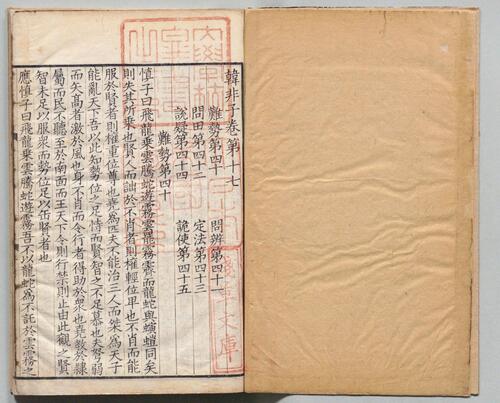 韓非子卷第十七
難勢第四十　問辨第四十一
問田第四十二　定法第四十三
說疑第四十四　詭使第四十五
難勢第四十
慎子曰飛龍乗雲騰蛇遊霧雲罷霧霽而龍蛇與螾螘同矣
則失其所乗也賢人而詘於不肖者則權輕位卑也不肖而能
服於賢者則權重位尊也堯為匹夫不能治三人而桀為天子
能亂天下吾以此知勢位之足恃而賢智之不足慕也夫弩弱
而矢高者激於風也身不肖而令行者得助於衆也堯教於隸
屬而民不聽至於南面而王天下令則行禁則止由此觀之賢
智未足以服衆而勢位足以缶賢者也
應慎子曰飛龍乗雲騰蛇遊霧吾不以龍蛇為不託於雲霧之
文庫